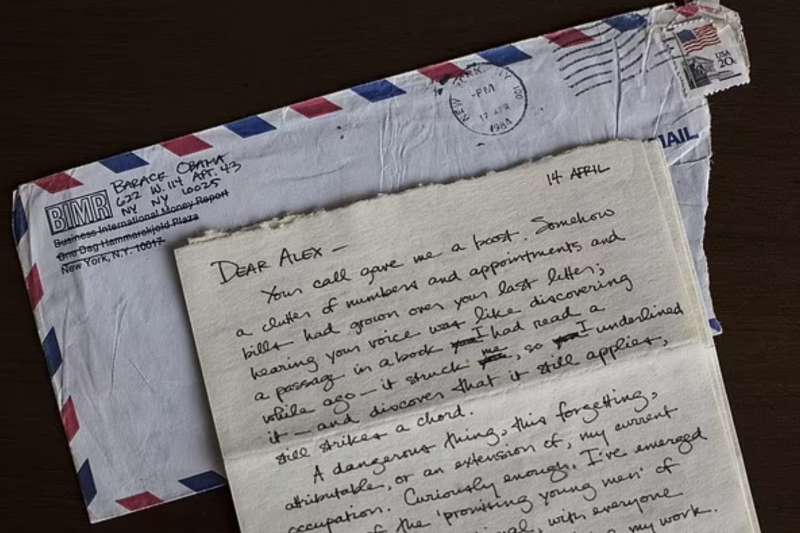 BARACK OBAMA
622 W. 114 APT. 43
NY NY 10025
BIMR
Business International Money Report
One Dag Hammarskjold Plaza
New York, N.Y. 10017
NEW YORK, NY 100
PM
17 APR
1984
USA
20c
MAIL
14 APRIL
DEAR ALEX —
Your call gave me a boost. Somehow
a clutter of numbers and appointments and
bills had grown over your last letter;
hearing your voice was like discovering
a passage in a book you I had read a
while ago — it struck me, so you I underlined
it — and discover that it still applies,
still strikes a chord.
A dangerous thing, this forgetting,
attributable, or an extension of, my current
occupation. Curiously enough, I've emerged
of the 'promising young men' of
with everyone
my work.